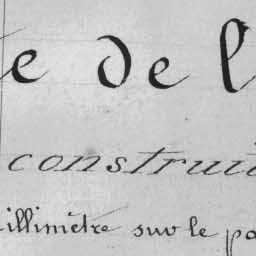 e de l
construi
illimètre sur le pa